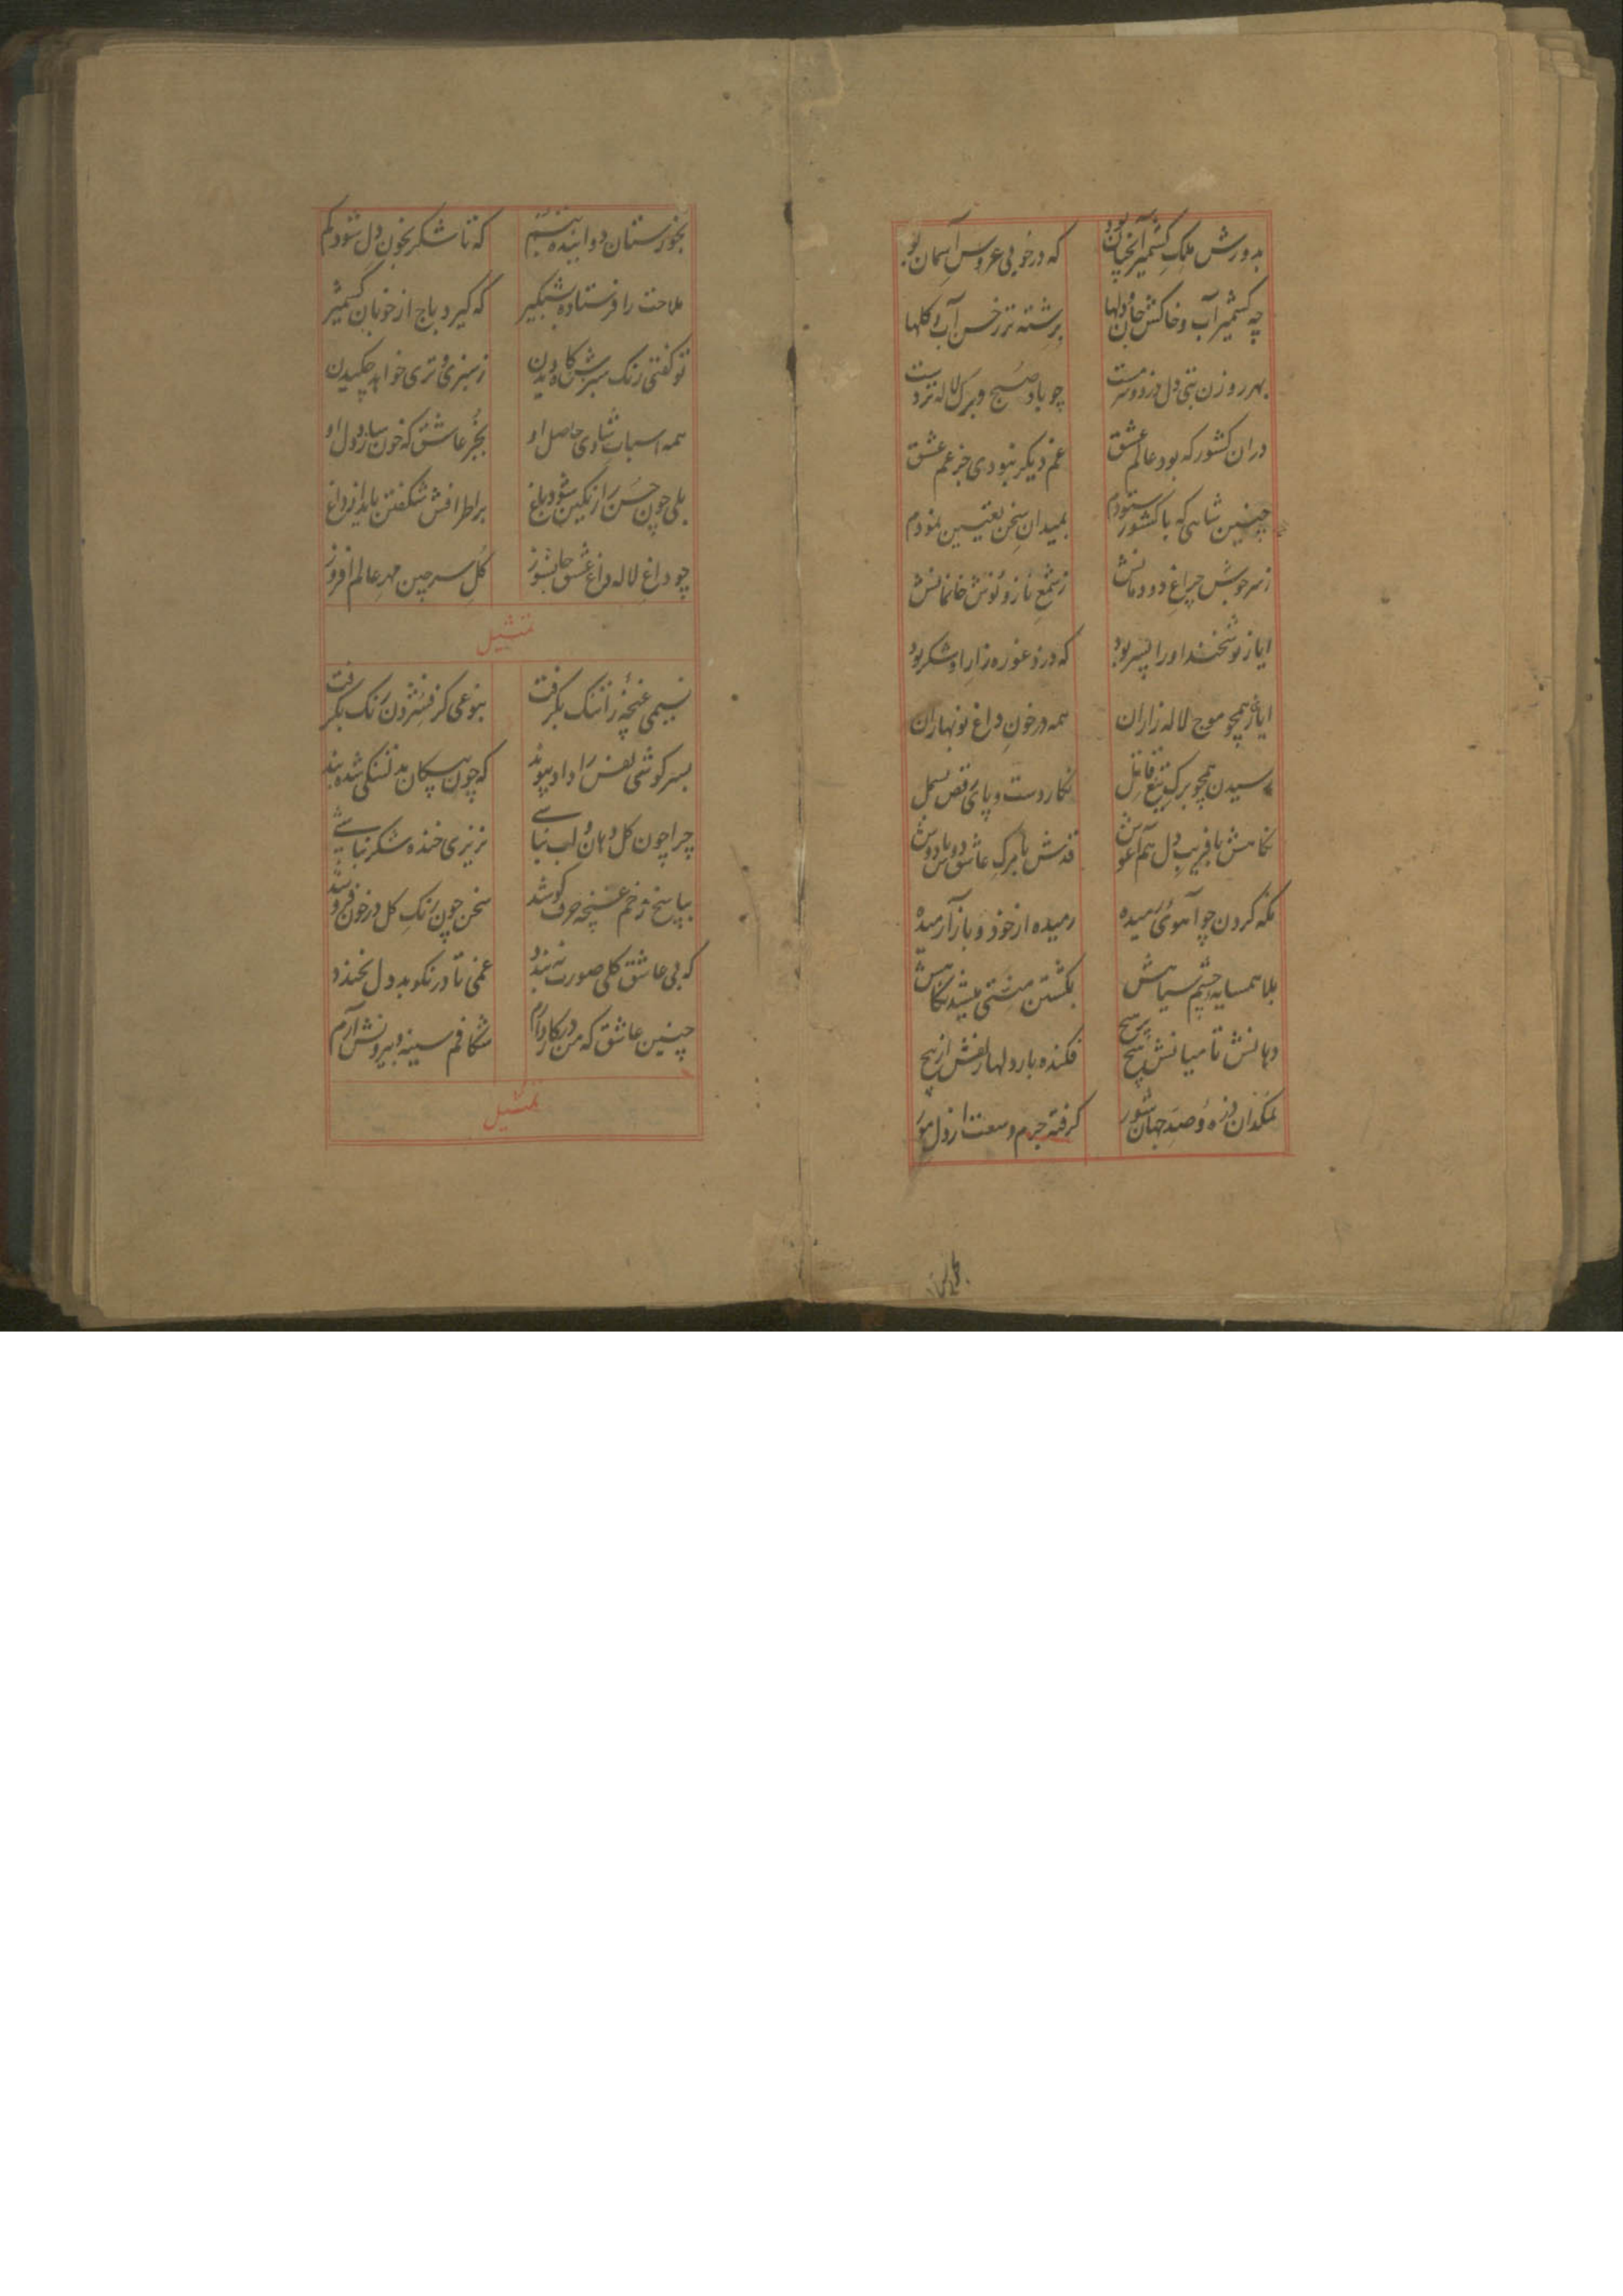 بدورش ملک کشمیر آنچنان بود که در خوبی عروس آسمان بود
چه کشمیر آب و خاکش جان دلها برشته تر ز حسن آب و گلها
بهر روزن بتی دل دزد و سرمست چو باد صبح و برک لاله تردست
دران کشور که بود عالم عشق غم دیکر نبودی جز غم عشق
چنین شاهی که با کشور ستودم بمیدان سخن تعیین نمودم
چراغ دودمانش ز شمع ناز و نوش خانمانش
ایاز نوشخند او را پسر بود که در زد غوره زار او شکر بود
ایاز همچو موج لاله زاران همه در خون داغ نوبهاران
رسیدن همچو برک تیغ قاتل نکار دست و پای رقص بسمل
نکاهش با فریب دل هم آغوش قدش با مرک عاشق دوش بر دوش
نکه کردن چو آهوی رمیده رمیده از خود و باز آرمیده
بلا همسایه چشم سیاهش بکشتن منتی میشد نکاهش
دهانش تا میانش هیچ بر هیچ فکنده بار دلها زلفش از پیچ
نمکدان ذره و صد جهان شور کرفته جرم وسعت از دل مور
بخوزستان دوانیده تبسم که تا شکر بخون دل شود کم
ملاحت را فرستاده بشبکیر که کیرد باج از خوبان کشمیر
تو کفتی رنک سبزش کاه دیدن ز سبزی و تری خواهد چکیدن
همه اسباب شادی حاصل او بجز عاشق که خون سازد دل او
بلی چون حسن را رنکین شود باغ بر اطرافش شکفتن باید از داغ
چو داغ لاله داغ عشق جانسوز کل سر چین مهر عالم افروز
تمثیل
نسیمی غنچه را تنک بکرفت بنوعی کز فشردن رنک بکرفت
بسرکوشی نفس را داد پیوند که چون پیکان بدلتنکی شده بند
چرا چون کل دهان و لب نیابی نریزی خنده شکر نیابی
بپاسخ زخم غنچه حرف کوشد سخن چون رنک کل در خون فروشد
که بی عاشق کلی صورت نه بندد غمی تا در نکوبد دل نخندد
چنین عاشق که من در کار دارم شکافم سینه و بیرونش آرم
تمثیل
بخوز